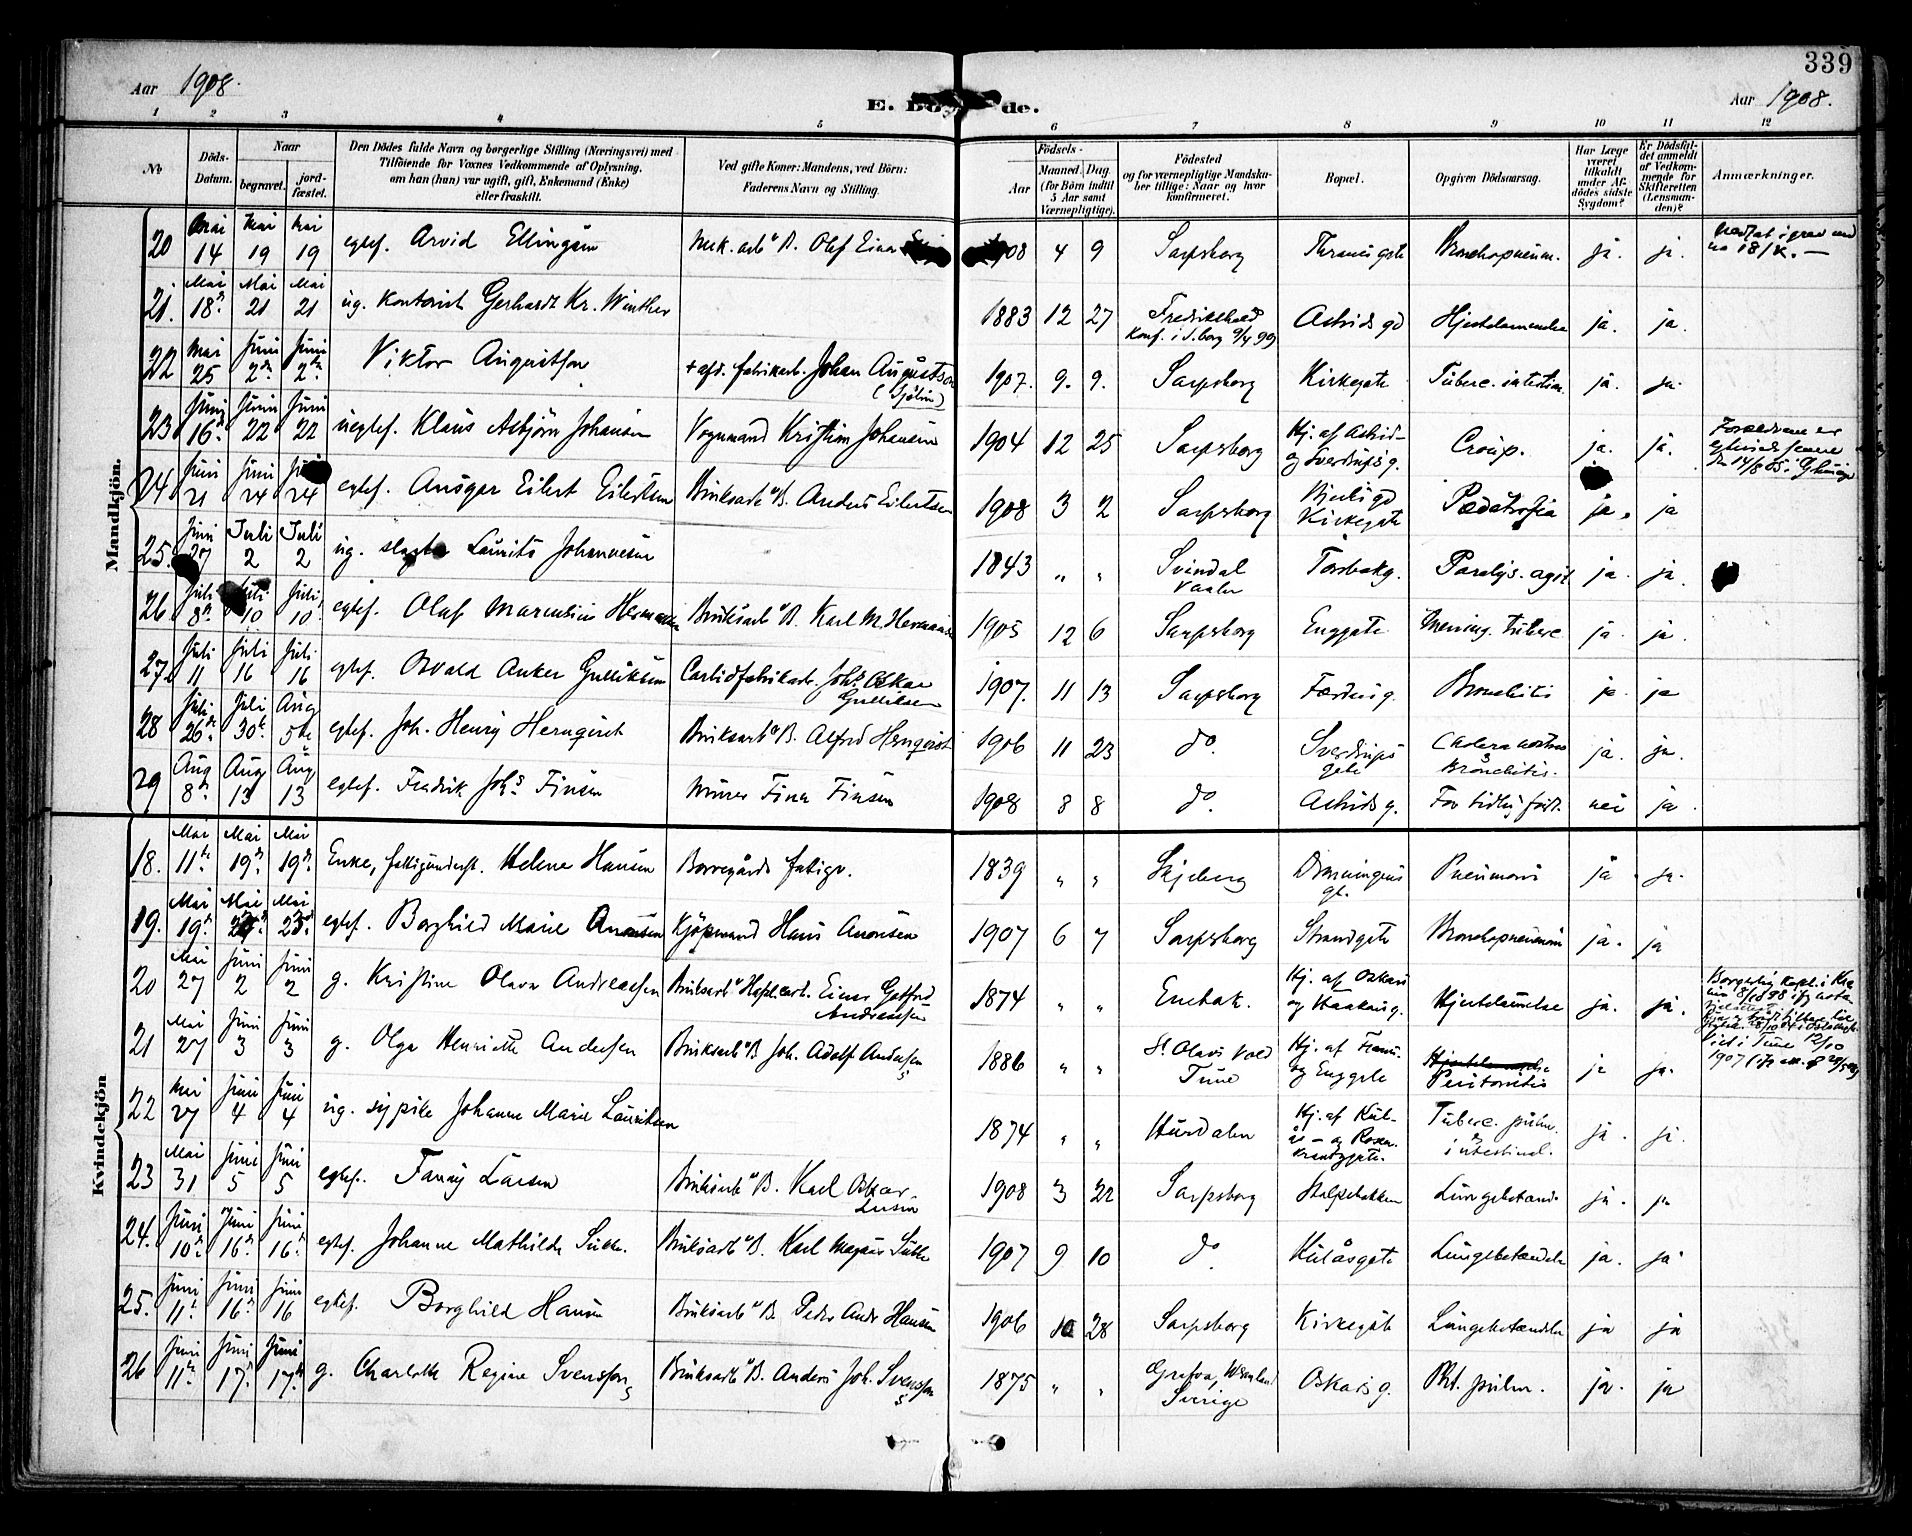 339
Aar 1908.
Aar 1908.
E. de.
1 2 3 4 5 6 7 8 9 10 11 12
No
Döds-
Datum.
Naar
begravet.
jord-
fæstet.
Den Dödes fulde Navn og borgerlige Stilling (Næringsvei) med
Tilföiende for Voxnes Vedkommende af Oplysning,
om han (hun) var ugift, gift, Enkemand (Enke)
eller fraskilt.
Ved gifte Koner: Mandens, ved Börn:
Faderens Navn og Stilling.
Födsels-
Aar
Maaned.
Dag
(for Börn indtil
5 Aar samt
Værnepligtige).
Födested
og for værnepligtige Mandska-
ber tillige: Naar og hvor
konfirmeret.
Bopæl.
Opgiven Dödsaarsag.
Har Læge
været
tilkaldt
under Af-
dödes sidste
Sygdom?
Er Dödsfal-
det anmeldt
af Vedkom-
mende for
Skifteretten
(Lensman-
den)?
Anmærkninger.
Mandkjön.
20 Mai 14 Mai 19 Mai 19 egtef. Arvid Ellingsen Mek. arb. v. B. Olaf Einar 1908 4 9 Sarpsborg Thranesgate Bronchopneum. ja. ja.
21. Mai 18de Mai 21 Mai 21 ug. Kontorist Gerhardt Kr. Winther 1883 12 27 Fredrikshald Astrids gd Hjertelammelse ja. ja.
Konf. i S.borg 9/4 99
22 Mai 25 Juni 2den Juni 2den Viktor Augustson + afd. fabrikarb. Johan Augustson 1907. 9. 9. Sarpsborg Kirkegate Tuberc. intestin. ja. ja.
(Sjölin)
23 Juni 16de Juni 22 Juni 22 uegtef. Klaus Asbjörn Johansen Vognmand Kristian Johansen 1904 12 25 Sarpsborg Hj. af Astrid- og Sverdrupsg. Croup. ja. ja.
Forældrene er
24 Juni 21 Juni 24 24 egtef. Ansgar Eilert Eilertsen Bruksarb. v. B. Anders Eilertsen 1908 3 2 Sarpsborg Kirkegate Pædatrofia ja. ja
25. Juni 27 Juli 2 Juli 2 ug. Laurits Johannesen 1843 „ „ Svindal Torsbakg. Paralys. agit. ja. ja.
Vaaler
26 Juli 8de Juli 10 Juli 10. egtef. Olaf Marentius Hermansen Bruksarb. v. B. Karl M. Hermansen 1905 12 6 Sarpsborg Enggate Mening. tuberc. ja. ja.
27 Juli 11 Juli 16 Juli 16 egtef. Osvald Anker Gulliksen Carbidfabrikarb. Johs. Oskar Gulliksen 1907. 11 13 Sarpsborg Færderg. Bronchitis ja. ja
28 Juli 26de Juli 30te Aug 5te egtef. Joh. Henry Hernqvist Bruksarb. v. B. Alfred Hernqvist 1906 11 23 do. Sverdrups gate Cholera nostras & Bronchitis. ja. ja.
29 Aug 8de Aug 13 Aug 13 egtef. Fredrik Johs. Finsen Murer Finn Finsen 1908 8 8 do. Astrids g. For tidlig født. nei ja.
Kvindekjön
18. Mai 11te Mai 19de Mai 19de Enke, fattigunderst. Helene Hansen Borregårds fatigv. 1839 „ „ Skjeberg Dronningens gt. Pneumoni ja. ja.
19. Mai 19de Mai Mai 25de egtef. Borghild Marie Anonsen Kjöpmand Hans Anonsen 1907 6 7 Sarpsborg Strandgate Bronchopneumoni ja. ja
20 Mai 27 Juni 2 Juni 2 g. Kristine Olava Andreassen Bruksarb. v. Hafsl. carb. Einar Gotfred Andreassen 1874 „ „ Enebak. Hj. af Oskars og Haakonsg. Hjertelammelse ja. ja.
21 Mai 27 Juni 3 Juni 3 g. Olga Henriette Andersen Bruksarb. v. B. Joh. Adolf Andersen 1886 „ „ St Olavs Vold Tune Hj. af og Enggate Peritonitis ja ja.
Viet i Tune 12/10
1907
22 Mai 27 Juni 4 Juni 4 ug. sypike Johanne Marie Lauritsen 1874 „ „ Hurdalen Hj. af Kul- ås- og Rosen- krantzgate. Tuberc. pulm. & intestinal. ja. ja.
23 Mai 31 Juni 5 Juni 5 egtef. Fanny Larsen Bruksarb. v. B. Karl Oskar Larsen 1908 3 22 Sarpsborg Stolpebakken Lungebetænd. ja. ja
24. Juni 10de Juni 16de Juni 16de egtef. Johanne Mathilde Sukke. Bruksarb. v. B. Karl Magnus Sukke 1907 9 10 do Kulåsgate Lungebetændelse ja. ja
25. Juni 11te Juni 16de Juni 16 egtef. Borghild Hansen Bruksarb. v. B. Peder Andr. Hansen 1906 10 28 Sarpsborg Kirkegate Lungebetændelse ja ja
26 Juni 11te Juni 17de Juni 17de g. Charlotte Regine Svensson Bruksarb. v. B. Anders Joh. Svensson 1875 „ „ Grafva, Wermland Sverige Oskars g. Pht. pulm. ja. ja